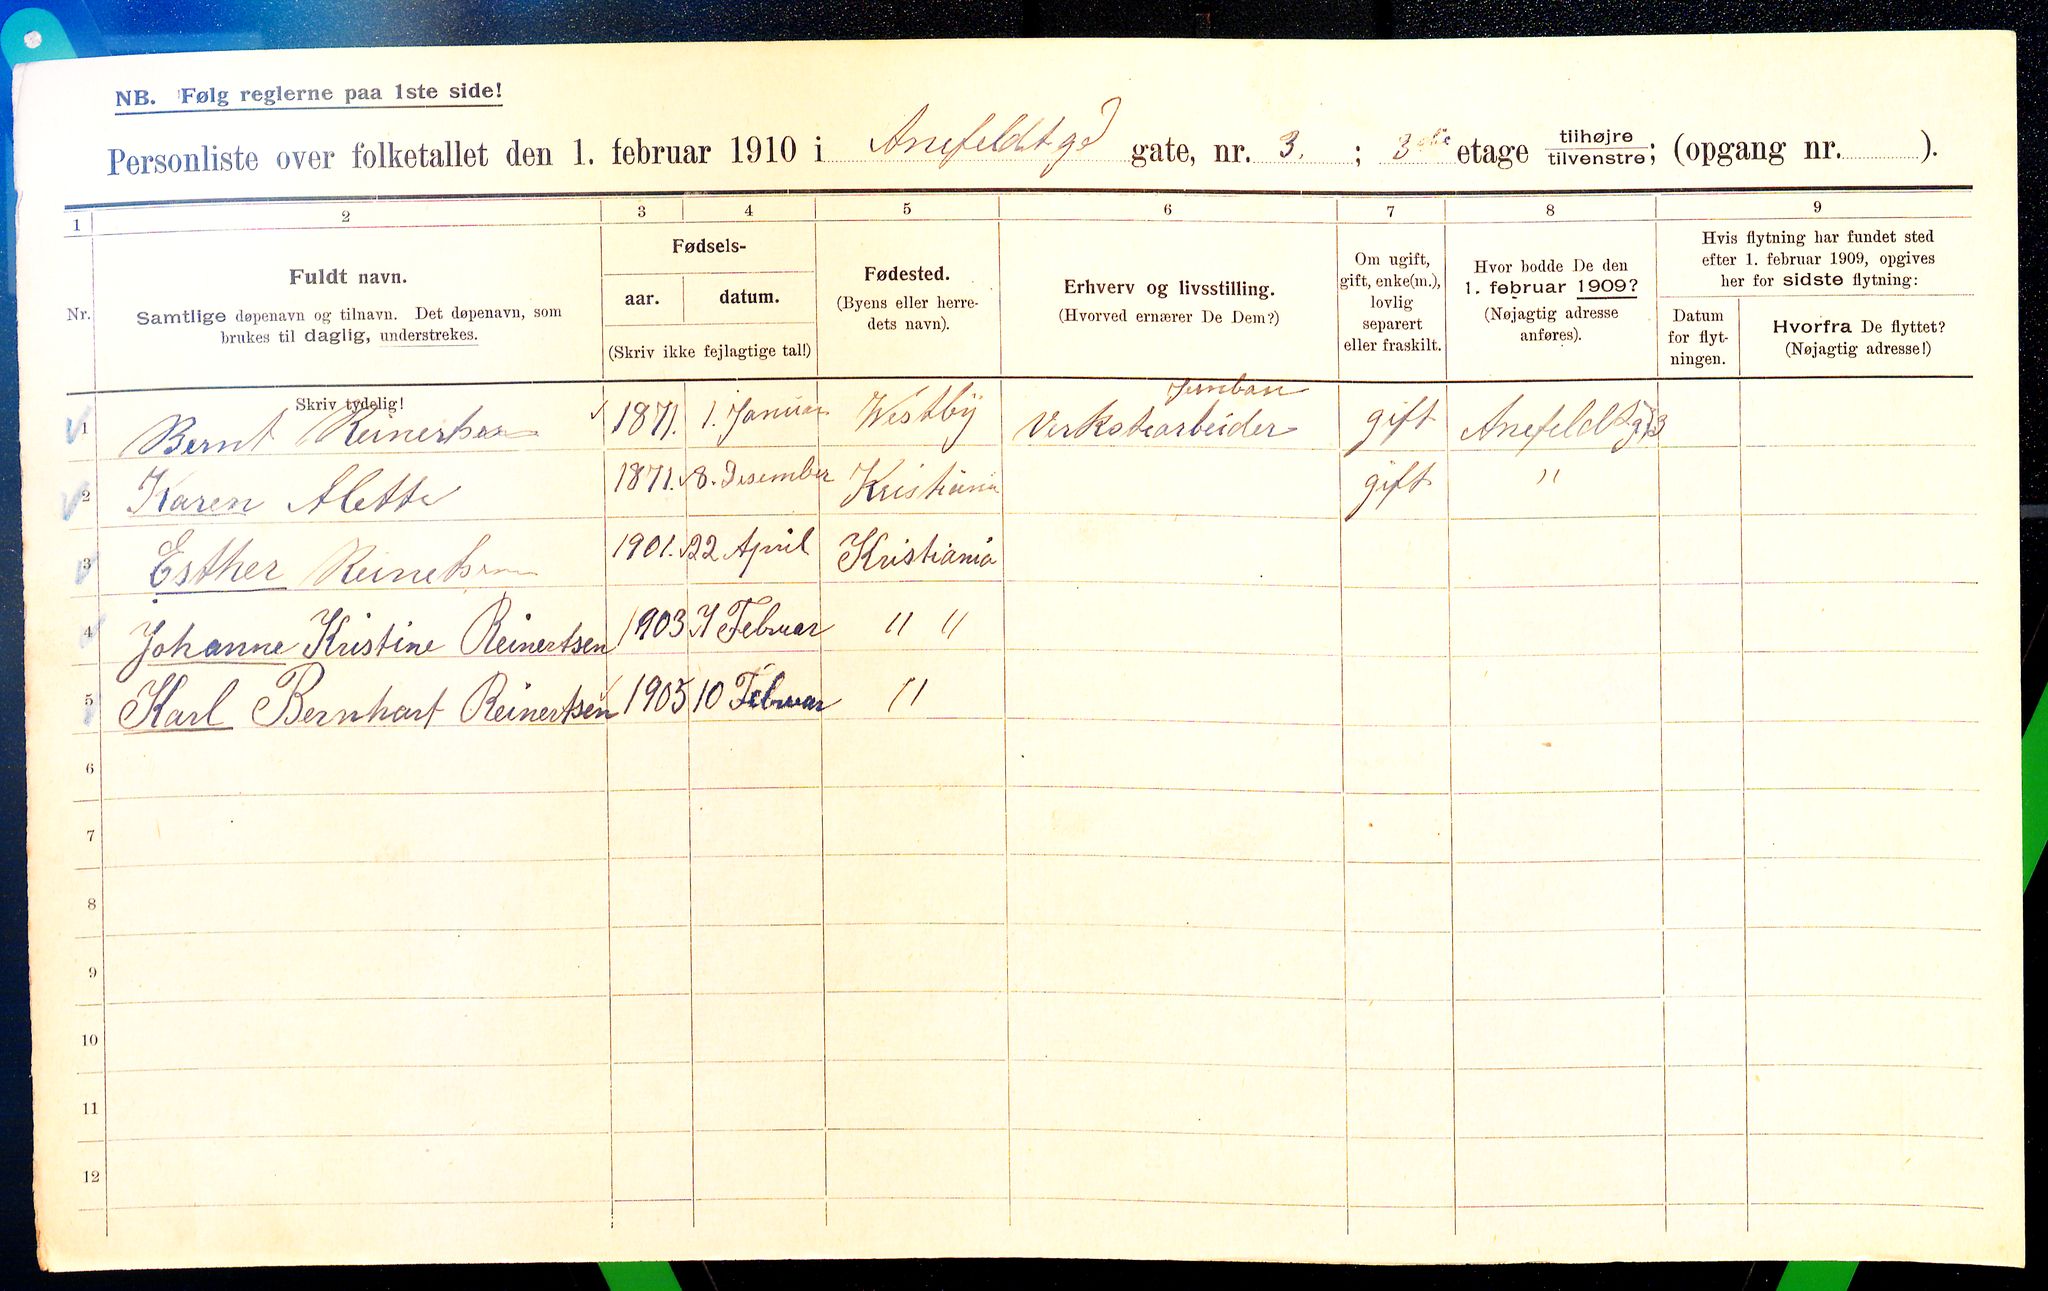 NB. Følg reglerne paa 1ste side!
Personliste over folketallet den 1. februar 1910 i Anefeldtgd gate, nr. 3. ; 3die etage tilhøjre/tilvenstre; (opgang nr. ).
1 2 3 4 5 6 7 8 9
Nr.
Fuldt navn.
Samtlige døpenavn og tilnavn. Det døpenavn, som
brukes til daglig, understrekes.
Skriv tydelig!
Fødsels-
aar. datum.
(Skriv ikke fejlagtige tal!)
Fødested.
(Byens eller herre-
dets navn).
Erhverv og livsstilling.
(Hvorved ernærer De Dem?)
Om ugift,
gift, enke(m.),
lovlig
separert
eller fraskilt.
Hvor bodde De den
1. februar 1909?
(Nøjagtig adresse
anføres).
Hvis flytning har fundet sted
efter 1. februar 1909, opgives
her for sidste flytning:
Datum
for flyt-
ningen.
Hvorfra De flyttet?
(Nøjagtig adresse!)
Jernban
1 Bernt Reinertsen 1871. 1. Januar Westby Verkstearbeider gift Anefeldtgd 3
2 Karen Alette 1871. 8. Desember Kristiania gift "
3 Esther Reinetsen 1901. 22 April Kristiania
4 Johanne Kristine Reinertsen 1903 Februar " "
5 Karl Bernhart Reinertsen 1905 10 Februar "
6
7
8
9
10
11
12